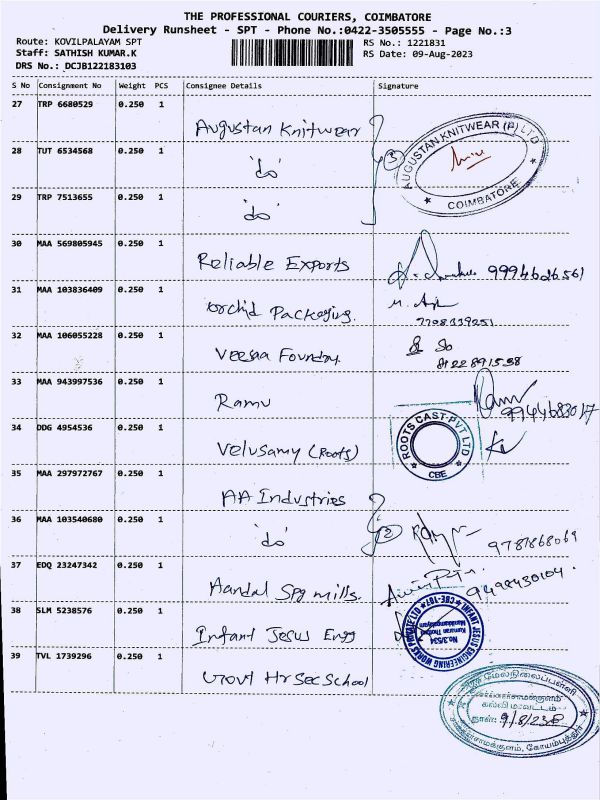 THE PROFESSIONAL COURIERS, COIMBATORE
Delivery Runsheet - SPT - Phone No.:0422-3505555 - Page No.:3
Route: KOVILPALAYAM SPT
RS No.: 1221831
Staff: SATHISH KUMAR.K
RS Date: 09-Aug-2023
DRS No.: DCJB122183103
S No Consignment No Weight PCS Consignee Details Signature
27 TRP 6680529 0.250 1 Augustan Knitwear
AUGUSTAN KNITWEAR (P) LTD
COIMBATORE
3
28 TUT 6534568 0.250 1 'do'
29 TRP 7513655 0.250 1 'do'
30 MAA 569805945 0.250 1 Reliable Exports 9994626561
31 MAA 103836409 0.250 1 Orchid Packaging.
7708339251
32 MAA 106055228 0.250 1 Veesaa Foundry.
33 MAA 943997536 0.250 1 Ramu
9944683017
34 DDG 4954536 0.250 1 Velusamy (Roots)
ROOTS CAST PVT LTD
CBE
35 MAA 297972767 0.250 1 AA Industries
36 MAA 103540680 0.250 1 'do' 2 9781868069
37 EDQ 23247342 0.250 1 Aandal Spg mills.
38 SLM 5238576 0.250 1 Infant Jesus Engg
INFANT JESUS ENGINEERING WORKS PRIVATE LTD
No.3/534
CBE-107
39 TVL 1739296 0.250 1 Govt Hr Sec School
மேல்நிலைப்பள்ளி
கல்வி மாவட்டம்
நாள்: 9/8/23
கோயம்புத்தூர்